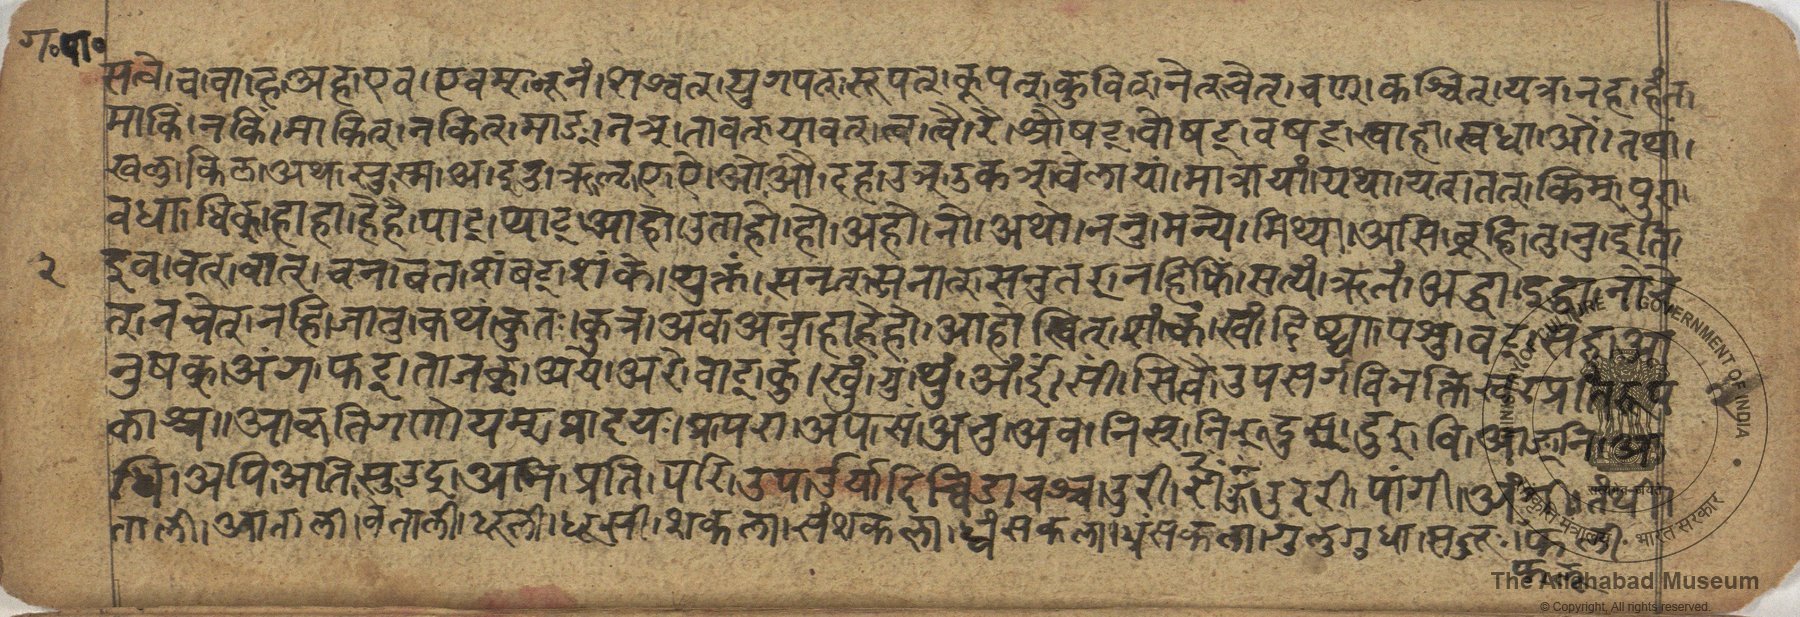 ग॰पा॰
सत्वे।च।वा।ह।अह।एव।एवम्।नूनं।शश्वत्।युगपत्।सूपत्।कूपत्।कुवित्।नेत्।चेत्।चण्।कश्चित्।यत्र।नह।हंत।
माकिं।नकिं।माकित्।नकित्।माङ्।नञ्।तावत्।यावत्।त्वै।रै।श्रौषट्।वौषट्।वषट्।स्वाहा।स्वधा।ओं।तथा।
खलु।किल।अथ।सु।स्म।अ।इ।उ।ऋ।लृ।ए।ऐ।ओ।औ।दह।उञ्।उकञ्।वेलायां।मात्रायां।यथा।यत्।तत्।किम्।पुरा।
वधा।धिक्।हाहा।हेहै।पाट्।प्याट्।आहो।उताहो।हो।अहो।नो।अथो।ननु।मन्ये।मिथ्या।असि।ब्रूहि।तु।नु।इति।
२ इव।वत्।वात्।चन।बत।शंषट्।शंकं।शुकं।सनत्।सनात्।सनुतर्।नहिकं।सत्यं।ऋतं।अद्धा।इद्धा।नोचे
त्।नचेत्।नहि।जातु।कथं।कुतः।कुत्र।अव।अनु।हाहेहो।आहोस्वित्।शंकं।खं।दिष्ट्या।पशु।वट्।सह।आ
नुषक्।अंग।फट्।ताजक्।अये।अरे।वाट्।कुं।खुं।घुं।थुं।अं।ईं।सीं।सिं।वै।उपसर्गविभक्तिस्वरप्रतिरूप
काश्च॥आकृतिगणोयम्।प्रादयः।प्र।परा।अप।सं।अनु।अव।निस्।निर्।दुस्।दुर्।वि।आङ्।नि।अ
धि।अपि।अति।सु।उद्।अभि।प्रति।परि।उप।उर्यादिच्विडाचश्च।उरी।उररी।पांपी।
ताली।आताली।वेताली।धूली।धूसी।शकला।संशकला।ध्वंसकला।भ्रंसकला।गुलुगुधा।सजूः।फल।फली।
The Allahabad Museum
© Copyright, All rights reserved.